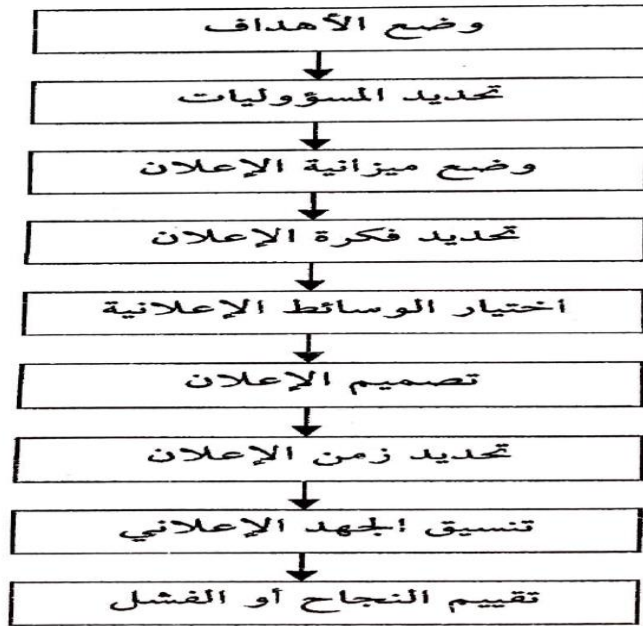 وضع الأهداف
تحديد المسؤوليات
وضع ميزانية الإعلان
تحديد فكرة الإعلان
اختيار الوسائط الإعلانية
تصميم الإعلان
تحديد زمن الإعلان
تنسيق الجهد الإعلاني
تقييم النجاح أو الفشل